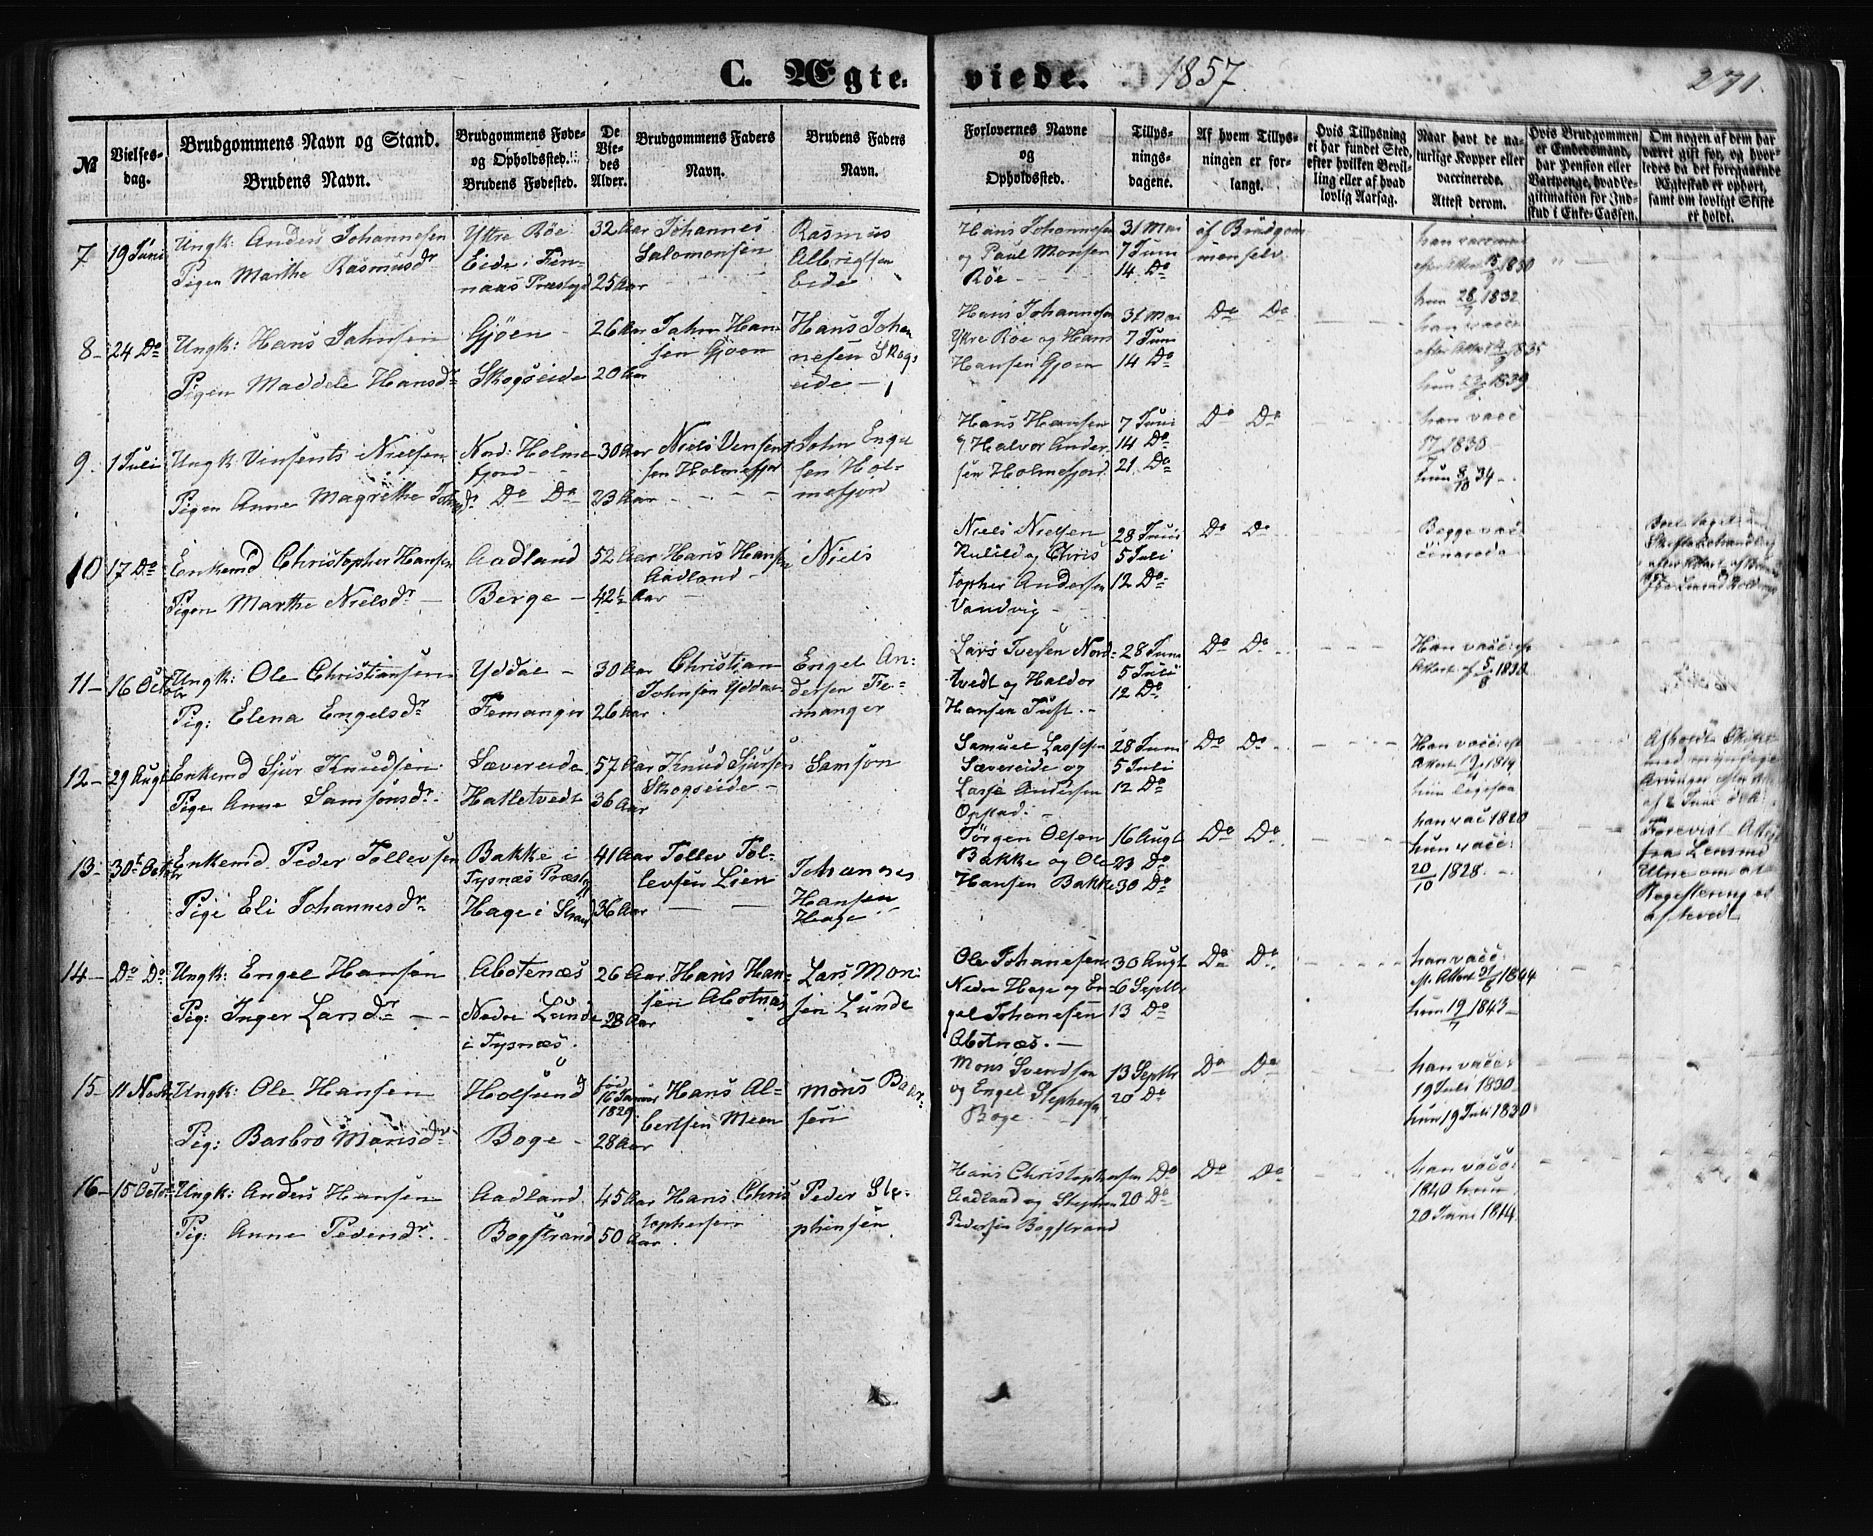 C. Ægte- viede. 1857 271.
№
Vielses-
dag.
Brudgommens Navn og Stand.
Brudens Navn.
Brudgommens Føde-
og Opholdssted.
Brudens Fødested.
De
Vie-
des
Alder.
Brudgommens Faders
Navn.
Brudens Faders
Navn.
Forlovernes Navne
og
Opholdssted.
Tillys-
nings-
dagene.
Af hvem Tillys-
ningen er for-
langt.
Hvis Tillysning
ei har fundet Sted,
efter hvilken Bevil-
ling eller af hvad
lovlig Aarsag.
Naar havt de na-
turlige Kopper eller
vaccinerede.
Attest derom.
Hvis Brudgommen
er Embedsmand,
har Pension eller
Vartpenge, hvad Le-
gitimation for Ind-
skud i Enke-Cassen.
Om nogen af dem har
været gift før, og hvor-
ledes da det foregaaende
Ægteskab er ophørt,
samt om lovligt Skifte
er holdt.
7 19 Juni
Ungk: Anders Johannesen
Pigen Marthe Rasmusdr
Yttre Røe
Eide i Fin-
naas Præstegd
32 Aar
25 Aar
Johannes
Salomonsen
Rasmus
Albrigtsen
Eide
Hans Johannesen
og Paul Monsen
Røe
31 Mai
7 Juni
14 Do
af Brudgom
men selv
1830
hun 28/7 1832
8 24 Do
Ungk: Hans Johnsen
Pigen Maddele Hansdr
Gjøen
Skogseide
26 Aar
20 Aar
John Han
sen Gjøen
Hans Johan
nesen Skogs
eide
Hans Johannesen
Yttre Røe og Hans
Hansen Gjøen
31 Mai
7 Juni
14 Do
Do Do
han vacc
1835
hun 1839
9. 1 Juli
Ungk: Vinsents Nielsen
Pigen Anne Magrethe Johnsdr
Nord: Holme
fjord
Do Do
30 Aar
23 Aar
Niels Vinsent
sen Holmefjor
John Engel
sen Hol-
mefjord
Hans Hansen
og Halvor Ander
sen Holmefjord
7 Juni
14 Do
21 Do
Do Do
han vacc
1830
hun 8/10 34
10 17 Do
Enkemd Christopher Hansen
Pigen Marthe Nielsdr
Aadland
Berge
52 Aar
42½ Aar
Hans Hansen
Aadland
Niels
Niels Nielsen
og Chris
topher Andersen
Vandvig
28 Juni
5 Juli
12 Do
Do Do
Begge vac
cinerede
11 16 Octobr
Ungk: Ole Christiansen
Pig: Elena Engelsdr
Yddal
Femanger
30 Aar
26 Aar
Christian
Johnsen Yddal
Engel An-
dersen Fe-
manger
Lars Iversen Nord-
tvedt og Haldor
Hansen Tuft.
28 Juni
5 Juli
12 Do
Do Do
Han vacc: eft
Attest af 5/8 1832
12 29 Augt
Enkemd Sjur Knudsen
Pige Anne Samsonsdr
Sævereide
Hatletvedt
57 Aar
36 Aar
Knud Sjursen
Skogseide
Samson
Samuel Lassesen
Sævereide og
Lasse Andersen
Opstad.
28 Juni
5 Juli
12 Do
Do Do
Han vacc: eft
Attest 1819
hun ligesaa
13 30t Octobr
Enkemd. Peder Tollevsen
Pige Eli Johannesdr
Bakke i
Tysnæs Præstgj
Hage i Strand
41 Aar
36 Aar
Tollev Tol-
levsen Lien
Johannes
Hansen
Hage
Jørgen Olsen
Bakke og Ole
Hansen Bakke
16 Augt
23 Do
30 Do
Do Do
han vac 1820
hun vacc:
20/10 1828.
Forevist Attest
fra Lensmd
Ulne om at
Registrering er
afhvedt
14 Do Do
Ungk: Engel Hansen
Pig: Inger Larsdr
Abotenæs
Nedre Lunde
i Tysnæs.
26 Aar
28 Aar
Hans Han-
sen Abotnæs
Lars Mon-
sen Lunde
Ole Johanesen
Nedre Hage og En-
gel Johanesen
Abotnæs.
30 Augt
6 Septbr
13 Do
Do Do
han vacc:
1844
hun 19/7 1843
15 11 Novbr
Ungk: Ole Hansen
Pig: Barbro Monsdr
Holsund
Boge
fød
16 Januar
1829
28 Aar
Hans Al-
bertsen Meen
Mons Baar-
sen
Mons Svendsen
og Engel Stephens
Boge
13 Septbr
20 Do
Do Do
han vacc:
19 Juli 1830
hun 19 Juli 1830
16 15 Octobr
Ungk: Anders Hansen
Pig: Anne Pedersdr.
Aadland
Bogstrand
45 Aar
50 Aar
Hans Chris
tophersen
Peder Ste-
phensen
Hans Christophersen
Aadland og Stephen
Pedersen Bogstrand
Do
20 Do
Do Do
han vacc:
1840 hun
20 Juni 1814